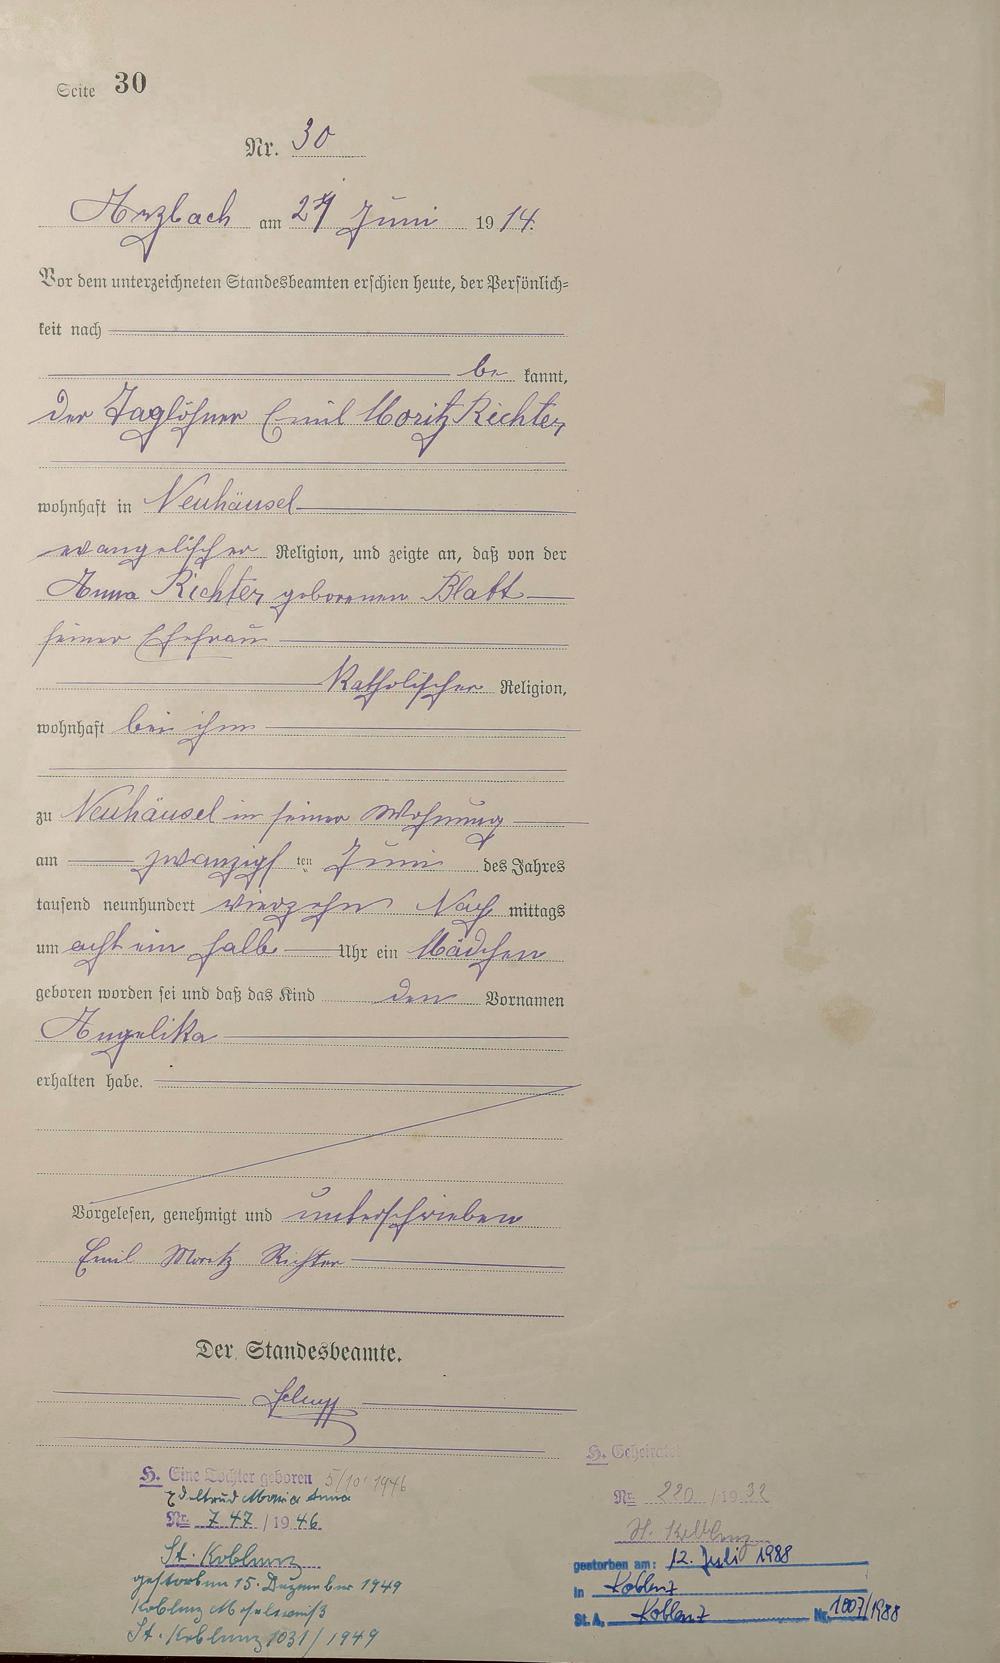 Seite 30
Nr. 30
Arzbach am 27 Juni 1914.
Vor dem unterzeichneten Standesbeamten erschien heute, der Persönlich=
keit nach
be kannt,
der Taglöhner Emil Moritz Richter
wohnhaft in Neuhäusel
evangelischer Religion, und zeigte an, daß von der
Anna Richter geborenen Blatt
seiner Ehefrau
Katholischer Religion,
wohnhaft bei ihm
zu Neuhäusel in seiner Wohnung
am zwanzigsten Juni des Jahres
tausend neunhundert vierzehn Nach mittags
um acht ein halb Uhr ein Mädchen
geboren worden sei und daß das Kind den Vornamen
Angelika
erhalten habe.
Vorgelesen, genehmigt und unterschrieben
Emil Moritz Richter
Der Standesbeamte.
H. Eine Tochter geboren 5/10 1946
Maria Anna
Nr. 747 / 1946
St. Koblenz
gestorben 15. Dezember 1949
Koblenz Moselweiß
St. Koblenz 1031 / 1949
H. Geheiratet
Nr. 220 / 1932
St. Koblenz
gestorben am: 12. Juli 1988
in Koblenz
St. A. Koblenz Nr. 1007/1988